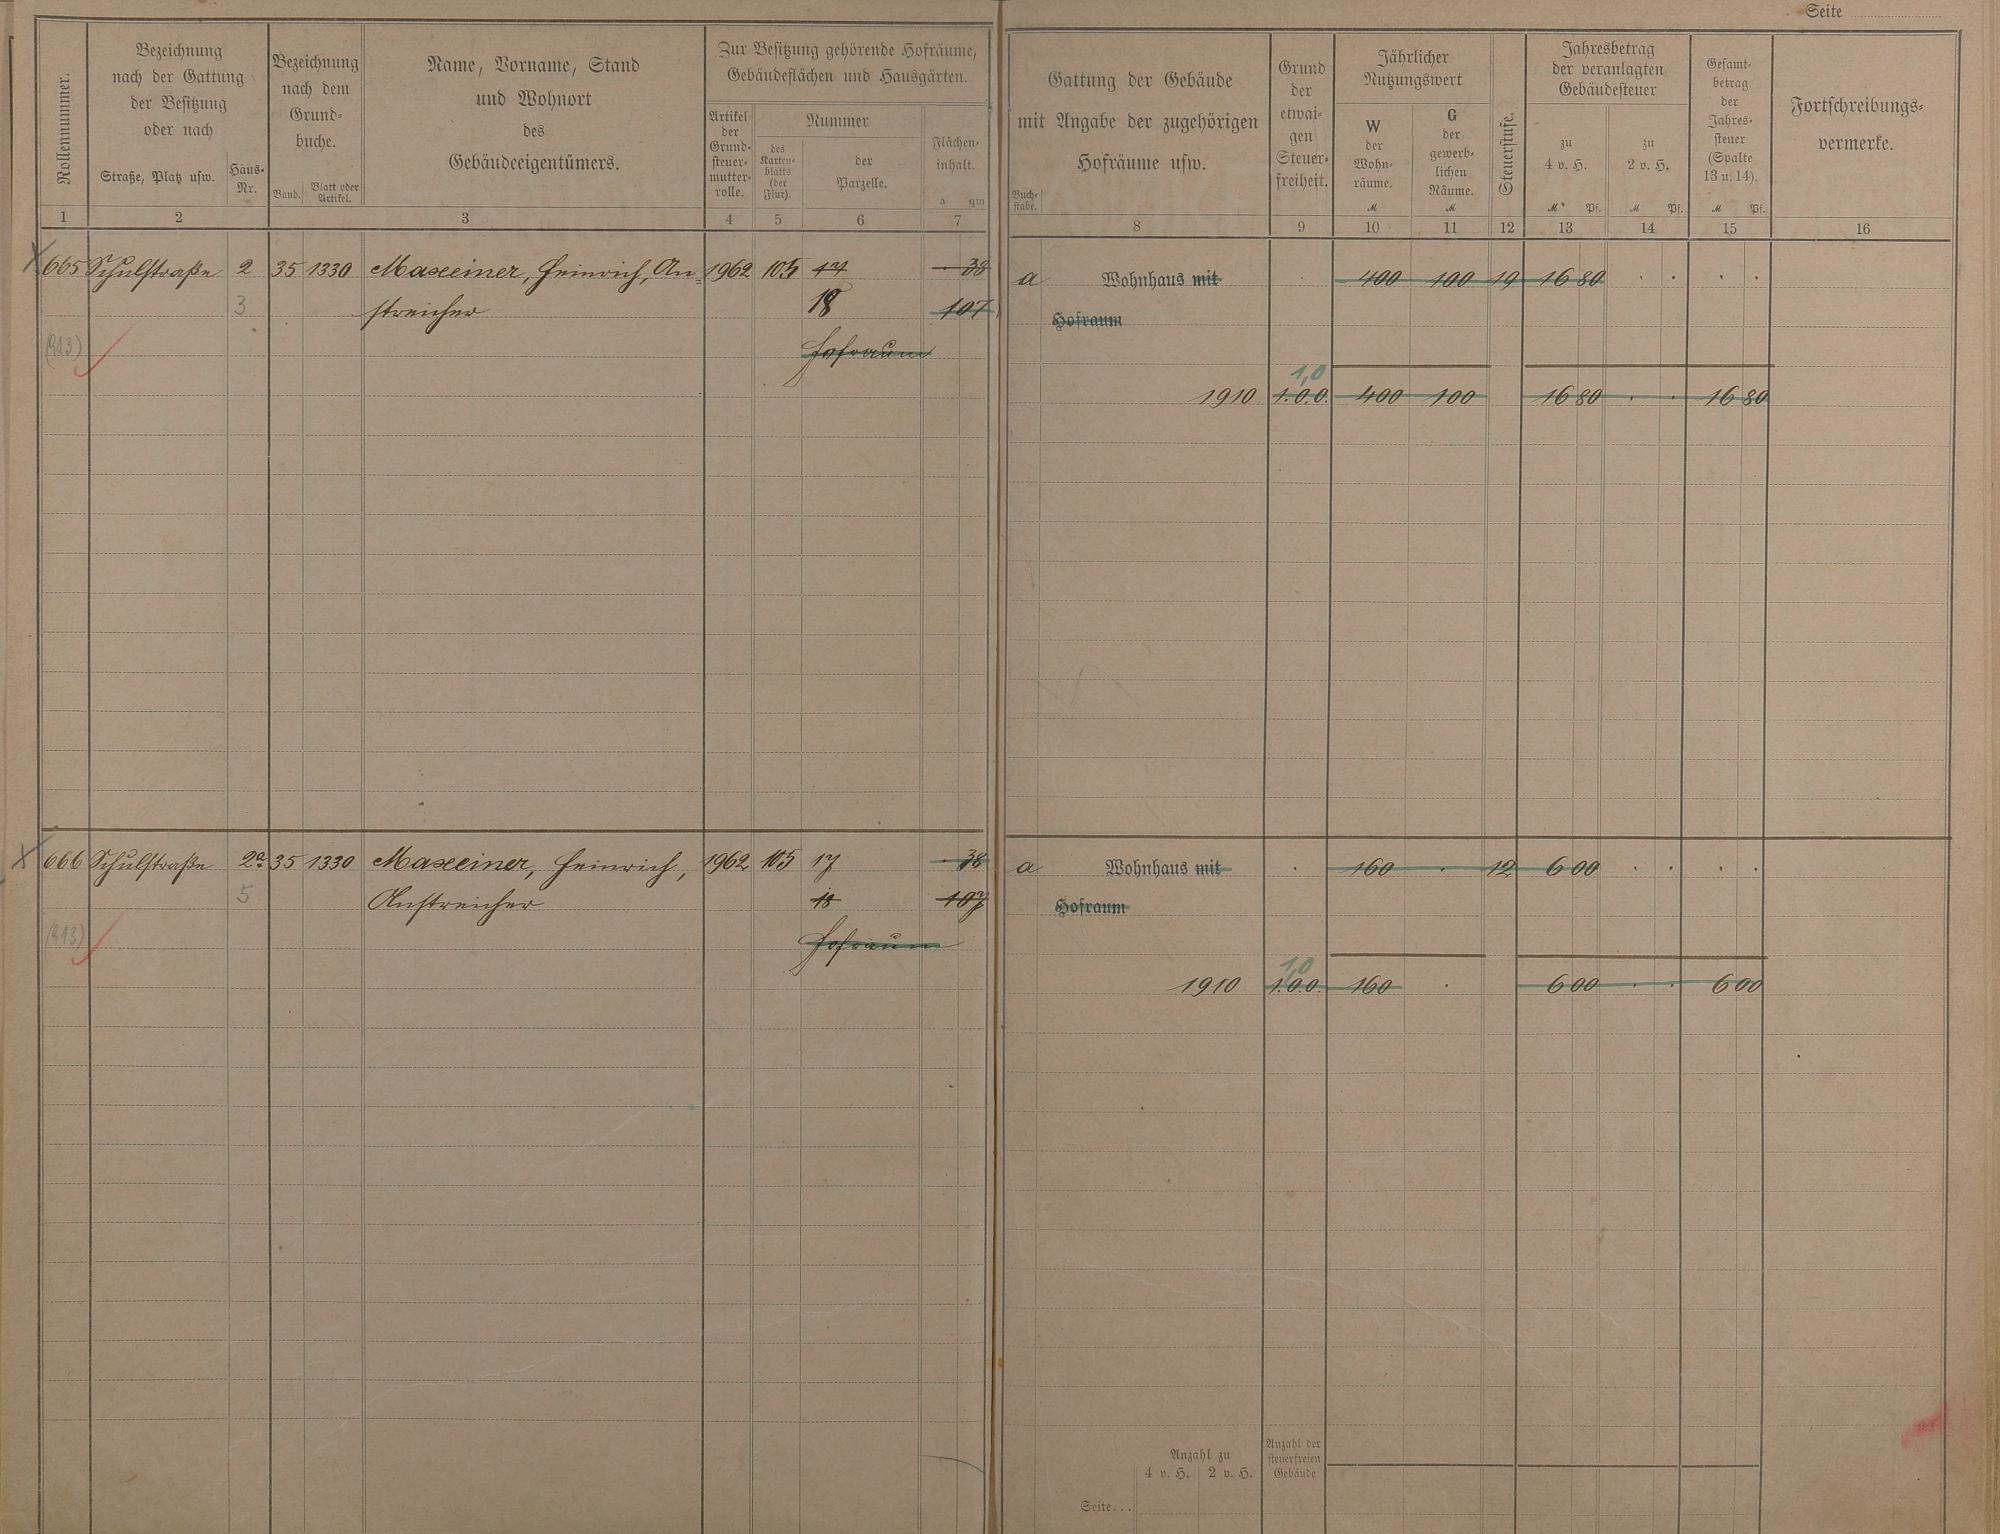 Seite
Rollennummer.
Bezeichnung
nach der Gattung
der Besitzung
oder nach
Straße, Platz usw.
Haus-
Nr.
Bezeichnung
nach dem
Grund-
buche.
Band.
Blatt oder
Artikel.
Name, Vorname, Stand
und Wohnort
des
Gebäudeeigentümers.
Zur Besitzung gehörende Hofräume,
Gebäudeflächen und Hausgärten.
Artikel
der
Grund-
steuer-
mutter-
rolle.
Nummer
des
Karten-
blatts
(der
Flur).
der
Parzelle.
Flächen-
inhalt.
a qm
Gattung der Gebäude
mit Angabe der zugehörigen
Hofräume usw.
Buch-
stabe.
Grund
der
etwai-
gen
Steuer-
freiheit.
Jährlicher
Nutzungswert
W
der
Wohn-
räume.
M
G
der
gewerb-
lichen
Räume.
M
Steuerstufe.
Jahresbetrag
der veranlagten
Gebäudesteuer
zu
4 v. H.
M Pf.
zu
2 v. H.
M Pf.
Gesamt-
betrag
der
Jahres-
steuer
(Spalte
13 u. 14).
M Pf.
Fortschreibungs-
vermerke.
1 2 3 4 5 6 7 8 9 10 11 12 13 14 15 16
665 Schulstraße 2 35 1330 Maxeiner, Heinrich, An= 1962 105 17 · 38 a Wohnhaus mit · 400 100 19 16 80 · · · ·
3 streicher 18 107 Hofraum
(913) Hofraum
1,0
1910 1.0.0. 400 100 16 80 · · 16 80
666 Schulstraße 2a 35 1330 Maxeiner, Heinrich, 1962 105 17 · 38 a Wohnhaus mit · 160 · 12 6 00 · · · ·
5 Anstreicher 18 107 Hofraum
(913) Hofraum
1,0
1910 1.0.0. 160 · 6 00 · · 6 00
Anzahl zu
4 v. H. 2 v. H.
Anzahl der
steuerfreien
Gebäude
Seite...